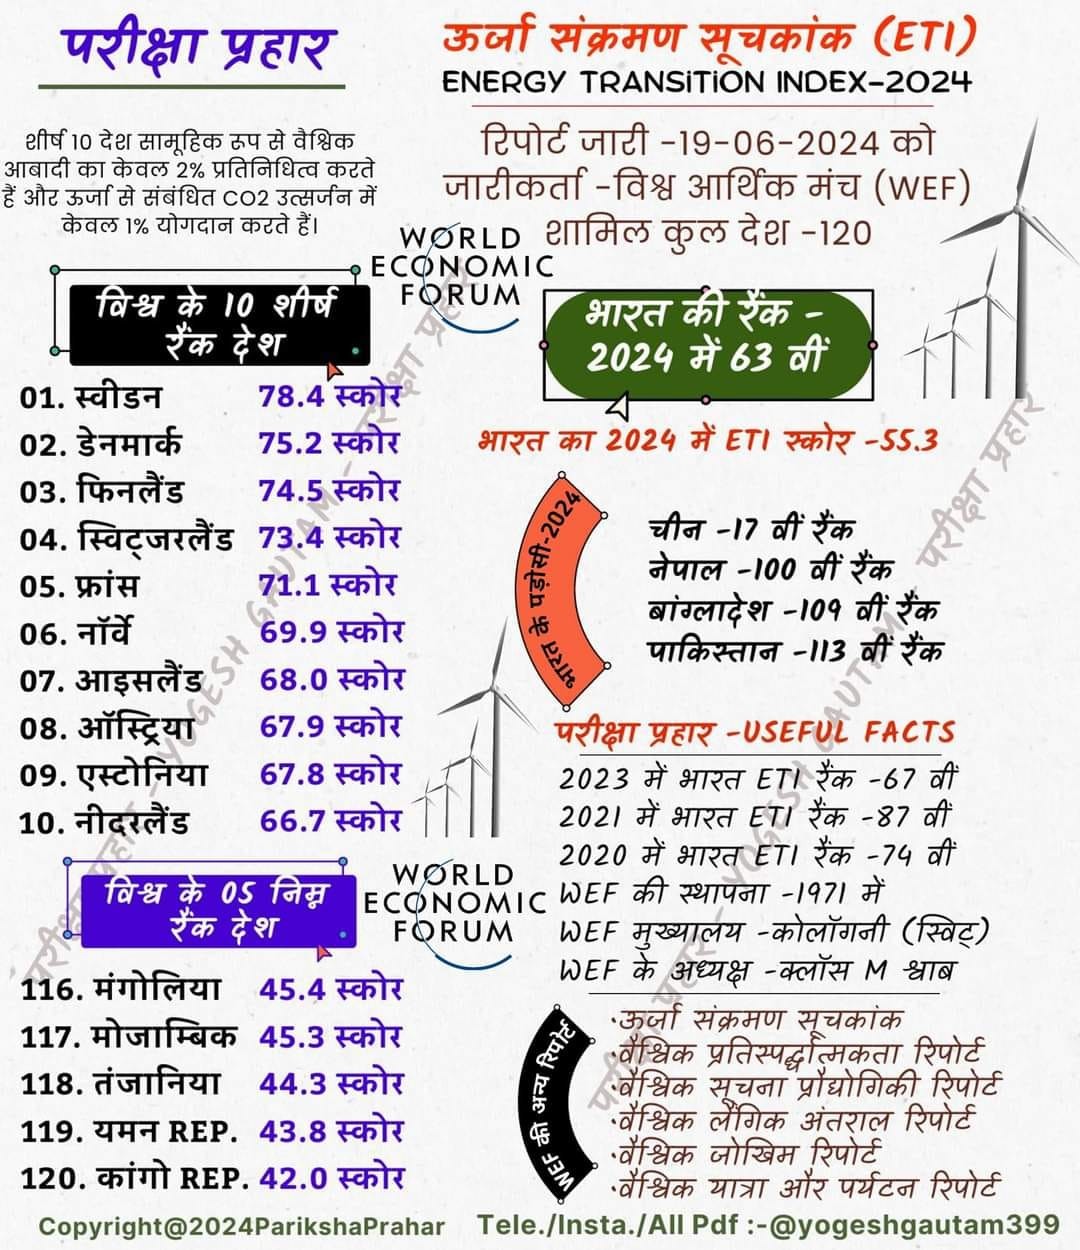 परीक्षा प्रहार
ऊर्जा संक्रमण सूचकांक (ETI)
ENERGY TRANSITION INDEX-2024
शीर्ष 10 देश सामूहिक रूप से वैश्विक
आबादी का केवल 2% प्रतिनिधित्व करते
हैं और ऊर्जा से संबंधित CO2 उत्सर्जन में
केवल 1% योगदान करते हैं।
रिपोर्ट जारी -19-06-2024 को
जारीकर्ता -विश्व आर्थिक मंच (WEF)
शामिल कुल देश -120
WORLD
ECONOMIC
FORUM
विश्व के 10 शीर्ष
रैंक देश
01. स्वीडन 78.4 स्कोर
02. डेनमार्क 75.2 स्कोर
03. फिनलैंड 74.5 स्कोर
04. स्विट्जरलैंड 73.4 स्कोर
05. फ्रांस 71.1 स्कोर
06. नॉर्वे 69.9 स्कोर
07. आइसलैंड 68.0 स्कोर
08. ऑस्ट्रिया 67.9 स्कोर
09. एस्टोनिया 67.8 स्कोर
10. नीदरलैंड 66.7 स्कोर
भारत की रैंक -
2024 में 63 वीं
भारत का 2024 में ETI स्कोर -55.3
भारत के पड़ोसी-2024
चीन -17 वीं रैंक
नेपाल -100 वीं रैंक
बांग्लादेश -109 वीं रैंक
पाकिस्तान -113 वीं रैंक
परीक्षा प्रहार -USEFUL FACTS
2023 में भारत ETI रैंक -67 वीं
2021 में भारत ETI रैंक -87 वीं
2020 में भारत ETI रैंक -74 वीं
WEF की स्थापना -1971 में
WEF मुख्यालय -कोलॉगनी (स्विट्)
WEF के अध्यक्ष -क्लॉस M श्वाब
विश्व के 05 निम्न
रैंक देश
WORLD
ECONOMIC
FORUM
116. मंगोलिया 45.4 स्कोर
117. मोजाम्बिक 45.3 स्कोर
118. तंजानिया 44.3 स्कोर
119. यमन REP. 43.8 स्कोर
120. कांगो REP. 42.0 स्कोर
WEF की अन्य रिपोर्ट
·ऊर्जा संक्रमण सूचकांक
·वैश्विक प्रतिस्पर्द्धात्मकता रिपोर्ट
·वैश्विक सूचना प्रौद्योगिकी रिपोर्ट
·वैश्विक लैंगिक अंतराल रिपोर्ट
·वैश्विक जोखिम रिपोर्ट
·वैश्विक यात्रा और पर्यटन रिपोर्ट
परीक्षा प्रहार - YOGESH GAUTAM - परीक्षा प्रहार
परीक्षा प्रहार - YOGESH GAUTAM - परीक्षा प्रहार
Copyright@2024ParikshaPrahar
Tele./Insta./All Pdf :-@yogeshgautam399